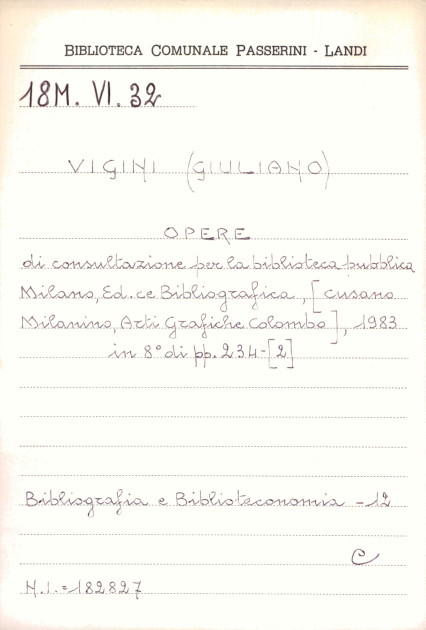 BIBLIOTECA COMUNALE PASSERINI - LANDI
18M. VI. 32
VIGINI (GIULIANO)
OPERE
di consultazione per la biblioteca pubblica
Milano, Ed.ce Bibliografica, [Cusano
Milanino, Arti Grafiche Colombo], 1983
in 8° di pp. 234-[2]
Bibliografia e Biblioteconomia - 12
C
N.I. = 182827